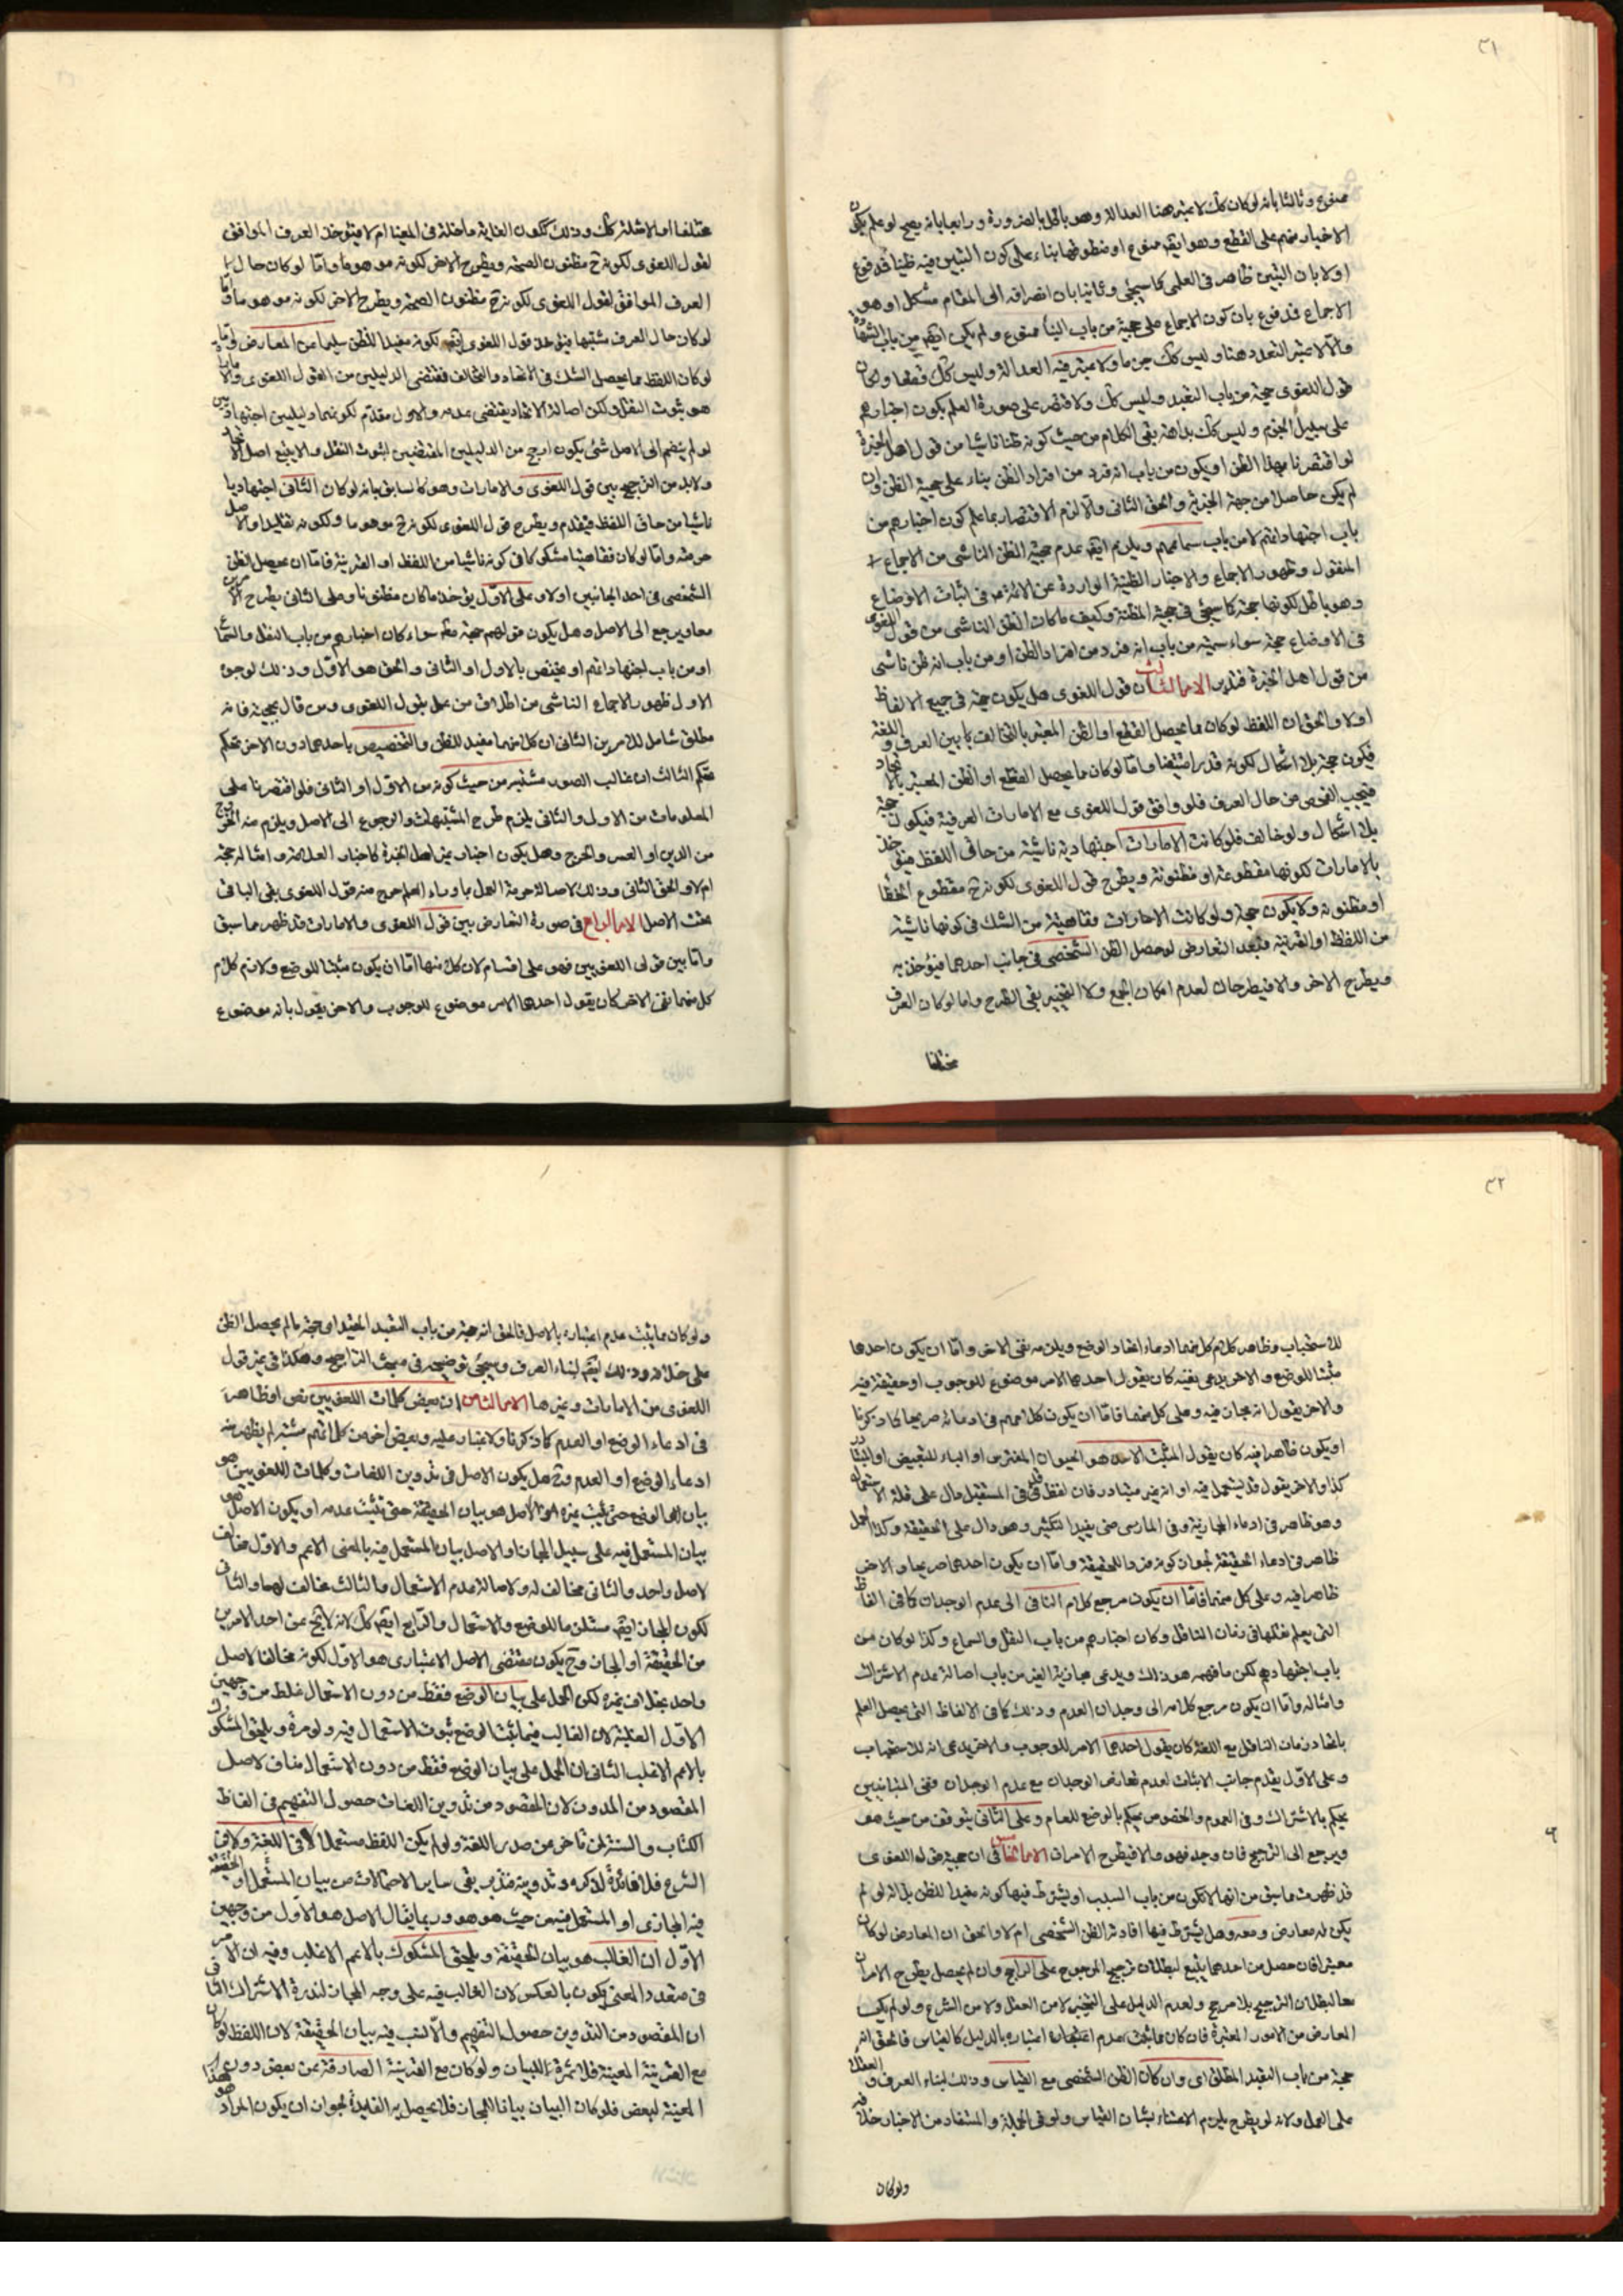 ٣١
ممنوع وثالثا بانه لو كان كك لاعتبر هنا العدالة وهو باطل بالضرورة ورابعا بانه يصح لو علم يكون
الاخبار منهم على القطع وهو ايضا ممنوع او مظنونها بناء على كون التبين فيه ظنيا فمدفوع
اولا بان التبين ظاهر في العلمي كما سيجئ وثانيا بان انصرافه الى المقام مشكل او هو
الاجماع فمدفوع بان كون الاجماع على حجية من باب النبأ ممنوع ولم يكن ايضا من باب الشهادة
والا لاعتبر التعدد هنا وليس كك جزما ولاعتبر فيه العدالة وليس كك قطعا ولو كان
قول اللغوى حجة من باب التعبد وليس كك ولاقتصر على صورة العلم بكون اخبارهم
على سبيل الجزم وليس كك بداهة بقى الكلام من حيث كونه ظنا ناشيا من قول اهل الخبرة
لو اقتصرنا بهذا الظن او يكون من باب انه فرد من افراد الظن بناء على حجية الظن وان
لم يكن حاصلا من جهة الخبرية والحق الثانى والا لزم الاقتصار بما علم كون اخبارهم من
باب اجتهاداتهم لا من باب سماعهم ويلزم ايضا عدم حجية الظن الناشى من الاجماع
المنقول وظهور الاجماع والاخبار الظنية الواردة عن الائمة في اثبات الاوضاع
وهو باطل لكونها حجة كما سيجئ في حجية المظنة وكيف ما كان الظن الناشى من قول اللغوى
في الاوضاع حجة سواء سميته من باب انه فرد من افراد الظن او من باب انه ظن ناشى
من قول اهل الخبرة فتدبر الامر الثالث ان قول اللغوى هل يكون حجة في جميع الالفاظ
او لا والحق ان اللفظ لو كان مما يحصل القطع او الظن المعتبر بالتخالف ما بين العرف واللغة
فيكون حجة بلا اشكال لكونه قدرا متيقنا واما لو كان مما يحصل القطع او الظن المعتبر بالاتحاد
فيجب الفحص من حال العرف فلو وافق قول اللغوى مع الامارات العرفية فيكون حجة
بلا اشكال ولو خالف فلو كانت الامارات اجتهادية ناشية من حاق اللفظ فيؤخذ
بالامارات لكونها مقطوعة او مظنونة ويطرح قول اللغوى لكونه ح مقطوع الخطأ
او مظنونه ولا يكون حجة ولو كانت الامارات فقاهتية من الشك في كونها ناشية
من اللفظ او القرينة فبعد التعارض لو حصل الظن الشخصى في جانب احدهما فيؤخذ به
ويطرح الاخر والا فيطرحان لعدم امكان الجمع ولا التخيير بقى الطرح واما لو كان العرف
مختلفا
مختلفا او الامثلة كك وذلك ككون الغاية داخلة في المغيا ام لا فيؤخذ العرف الموافق
لقول اللغوى لكونه ح مظنون الصحة ويطرح الاخر لكونه موهوما واما لو كان حال
العرف الموافق لقول اللغوى لكونه ح مظنون الصحة ويطرح الاخر لكونه موهوما واما
لو كان حال العرف مشتبها فيؤخذ قول اللغوى ايضا لكونه مفيدا للظن سليما عن المعارض
لو كان اللفظ مما يحصل الشك في الاتحاد والتخالف فمقتضى الدليلين من القول اللغوى
هو ثبوت النقل ولكن اصالة الاتحاد يقتضى عدمه والاول مقدم لكونهما دليلين اجتهاديين
لو لم ينضم الى الاصل شئ يكون ارجح من الدليلين المقتضيين لثبوت النقل والا يتبع اصل الاتحاد
ولابد من الترجيح بين قول اللغوى والامارات وهو كما سابق بانه لو كان الثانى اجتهاديا
ناشيا من حاق اللفظ فيقدم ويطرح قول اللغوى لكونه ح موهوما ولكونه تقليدا والاصل
حرمته واما لو كان فقاهتيا مشكوكا في كونه ناشيا من اللفظ او القرينة فاما ان يحصل الظن
الشخصى في احد الجانبين او لا وعلى الاول يؤخذ ما كان مظنونا وعلى الثانى يطرح الامرين
معا ويرجع الى الاصل وهل يكون قولهم حجة مطم سواء كان اخبارهم من باب النقل والسماع
او من باب اجتهاداتهم او يختص بالاول او الثانى والحق هو الاول وذلك لوجوه
الاول ظهور الاجماع الناشى من اطلاق من عمل بقول اللغوى ومن قال بحجية فانه
مطلق شامل للامرين الثانى ان كل منهما مفيد للظن والتخصيص باحدهما دون الاخر تحكم
تحكم الثالث ان غالب الصور مشتبه من حيث كونه من الاول او الثانى فلو اقتصرنا على
المعلومات من الاول والثانى يلزم طرح المشتبهات والرجوع الى الاصل ويلزم منه الخروج
من الدين او العسر والحرج وهل يكون اخبار غير اهل الخبرة كاخبار العلامة وامثاله حجة
ام لا والحق الثانى وذلك لاصالة حرمة العمل بما وراء العلم خرج منه قول اللغوى بقى الباقى
تحت الاصل الامر الرابع في صورة التعارض بين قول اللغوى والامارات قد ظهر مما سبق
واما بين قولى اللغويين فهو على اقسام لان كل منهما اما ان يكون مثبتا للوضع ولازم كلام
كل منهما نفى الاخر كان يقول احدهما الامر موضوع للوجوب والاخر يقول بانه موضوع
٣٢
للاستحباب وظاهر كلام كل منهما ادعاء اتحاد الوضع ويلزمه نفى الاخر واما ان يكون احدهما
مثبتا للوضع والاخر يدعى نفيه كان يقول احدهما الامر موضوع للوجوب او حقيقة فيه
والاخر يقول انه مجاز فيه وعلى كل منهما فاما ان يكون كلامهم في ادعائه صريحا كما ذكرنا
او يكون ظاهرا فيه كان يقول المثبت الاسد هو الحيوان المفترس او الباء للتبعيض او المتبادر
كذا والاخر يقول قد يستعمل فيه او انه غير متبادر فان لفظ قد في المستقبل دال على قلة الاستعمال
وهو ظاهر في ادعاء المجازية وفى الماضى حتى يفيد التكثير وهو دال على الحقيقة وكذا الحمل
ظاهر في ادعاء الحقيقة لجواز كونه فردا للحقيقة واما ان يكون احدهما صريحا والاخر
ظاهرا فيه وعلى كل منهما فاما ان يكون مرجع كلام النافى الى عدم الوجدان كما في الفاظ
التى يعلم نقلها في زمان الناقل وكان اخبارهم من باب النقل والسماع وكذا لو كان من
باب اجتهادهم لكن ما فهمه هو ذلك ويدعى مجازية الغير من باب اصالة عدم الاشتراك
وامثاله واما ان يكون مرجع كلامه الى وجدان العدم وذلك كما في الالفاظ التى يحصل العلم
باتحاد زمان الناقل مع اللغة كان يقول احدهما الامر للوجوب والاخر يدعى انه للاستحباب
وعلى الاول يقدم جانب الاثبات لعدم تعارض الوجدان مع عدم الوجدان ففى المتباينين
يحكم بالاشتراك وفى العموم والخصوص يحكم بالوضع للعام وعلى الثانى يتوقف من حيث هو
ويرجع الى الترجيح فان وجد فهو والا فيطرح الامران الامر الخامس في ان حجية قول اللغوى
قد ظهرت مما سبق من انها لا تكون من باب السبب او يشترط فيها كونه مفيدا للظن بل انه لو لم
يكن له معارض ومعه وهل يشترط فيها افادته الظن الشخصى ام لا والحق ان المعارض لو كان
معتبرا فان حصل من احدهما يتبع لبطلان ترجيح المرجوح على الراجح وان لم يحصل يطرح الامران
معا لبطلان الترجيح بلا مرجح ولعدم الدليل على التخيير لا من العقل ولا من الشرع ولو لم يكن
المعارض من الامور المعتبرة فان كان مما يثبت عدم اعتباره بالدليل كالقياس فالحق انه
حجة من باب التعبد المطلق اى وان كان الظن الشخصى مع القياس وذلك لبناء العرف والعقلاء
على العمل ولانه لو يطرح يلزم الاعتناء بشان القياس ولو في الجملة والمستفاد من الاخبار خلافه
ولو كان
ولو كان مما يثبت عدم اعتباره بالاصل فالحق انه حجة من باب التعبد المقيد اى حجة ما لم يحصل الظن
على خلافه وذلك ايضا لبناء العرف وسيجئ توضيحه في مبحث التراجيح وهكذا في غير قول
اللغوى من الامارات وغيرها الامر الثامن ان بعض كلمات اللغويين نص او ظاهر
في ادعاء الوضع او العدم كما ذكرنا ولا غبار عليه وبعض اخر من كلماتهم مشتبه لم يظهر منه
ادعاء الوضع او العدم وح هل يكون الاصل في تدوين اللغات وكلمات اللغويين هو
بيان الموضوع حتى يثبت غيره او الاصل هو بيان الحقيقة حتى يثبت عدمه او يكون الاصل هو
بيان المستعمل فيه على سبيل المجاز او الاصل بيان المستعمل فيه بالمعنى الاعم والاول مخالف
لاصل واحد والثانى مخالف له ولاصالة عدم الاستعمال والثالث مخالف لهما والثانى
لكون المجاز ايضا مستلزما للوضع والاستعمال والرابع ايضا كك لانه لا يخ عن احد الامرين
من الحقيقة او المجاز وح يكون مقتضى الاصل الاعتبارى هو الاول لكونه مخالفا لاصل
واحد بخلاف غيره لكن الحمل على بيان الوضع فقط من دون الاستعمال غلط من وجهين
الاول الغلبة لان الغالب فيما يثبت الوضع ثبوت الاستعمال فيه ولو مرة ويلحق المشكوك
بالاعم الاغلب الثانى ان الحمل على بيان الوضع فقط من دون الاستعمال مناف لاصل
المقصود من المدون لان المقصود من تدوين اللغات حصول التفهيم في الفاظ
الكتاب والسنة لمن تاخر عن صدر اللغة ولو لم يكن اللفظ مستعملا لا في اللغة ولا في
الشرع فلا فائدة لذكره وتدوينه فتدبر بقى سائر الاحتمالات من بيان المستعمل او الحقيقة
فيه المجازى او المستعمل فيه من حيث هو هو وربما يقال الاصل هو الاول من وجهين
الاول ان الغالب هو بيان الحقيقة ويلحق المشكوك بالاعم الاغلب وفيه ان الامر
في متعدد المعنى يكون بالعكس لان الغالب فيه على وجه المجاز لندرة الاشتراك الثانى
ان المقصود من التدوين حصول التفهيم والانسب فيه بيان الحقيقة لان اللفظ لو كان
مع القرينة المعينة فلا ثمرة للبيان ولو كان مع القرينة الصارفة عن بعض دون
المعينة لبعض فلو كان البيان بيانا للمجاز فلا يحصل به الفائدة لجواز ان يكون المراد هو